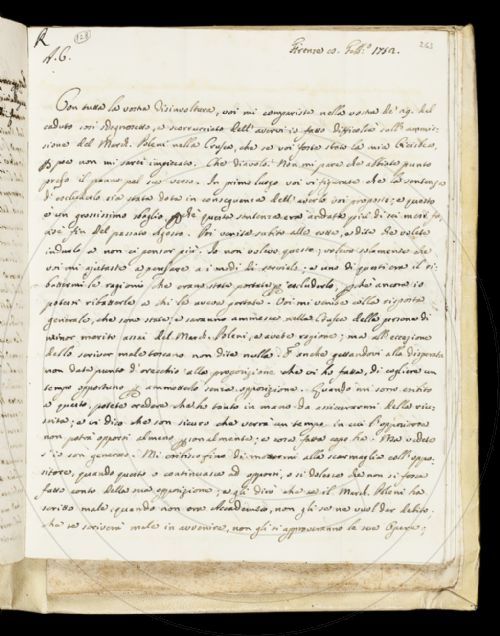 R
128
263
A. C.
Firenze 20. Febb.o 1752.
Con tutta la vostra disinvoltura, voi mi comparite nella vostra de' 29. del
caduto così sdegnosetto, e scorrucciato dell'avervi io fatto difficoltà sull'ammis-
sione del March. Poleni nella Crusca, che se voi foste stato la mia
poco non mi sarei impiccato. Che diavolo! Non mi pare che abbiate punto
preso il panno pel suo verso. In primo luogo voi vi figurate che la sentenza
di escluderlo sia stata data in conseguenza dell'averlo voi proposto; e questo
è un grossissimo sbaglio, perchè questa sentenza era andata più di sei mesi fa,
cioè fin del passato Agosto. Voi venite subito alle corte, e dite che volete
indurlo a non ci pensar più. Io non volevo questo; volevo solamente che
voi mi ajutaste a pensare a i modi di servirlo; e uno di questi era il ri-
battermi le ragioni che erano state portate per escluderlo, perchè ancor io
potessi ribatterle a chi le aveva portate. Voi mi venite colla risposta
generale, che sono state, e saranno ammesse nella Crusca delle persone di
minor merito assai del March. Poleni, e avete ragione; ma all'eccezione
dello scriver male toscano non dite nulla. E anche gettandovi alla disperata
non date punto d'orecchio alla proposizione che vi ho fatta, di cogliere un
tempo opportuno per ammetterlo senza opposizione. Quando mi sono esibito
a questo, potete credere che ho tanto in mano da assicurarmi della riu-
scita; e vi dico che son sicuro che verrà un tempo in cui l'oppositore
non potrà opporsi almeno personalmente; e cosa fatta capo ha. Ma vedete
s'io son generoso. Mi esibisco fino di mettermi alle scaramuglie coll'oppo-
sitore, quando questo o continuasse ad opporsi, o si dolesse che non si fosse
fatto conto della sua opposizione; e gli dirò che se il March. Poleni ha
scritto male, quando non era Accademico, non gli se ne vuol dar debito:
che se scriverà male in avvenire, non gli si approveranno le sue Opere;